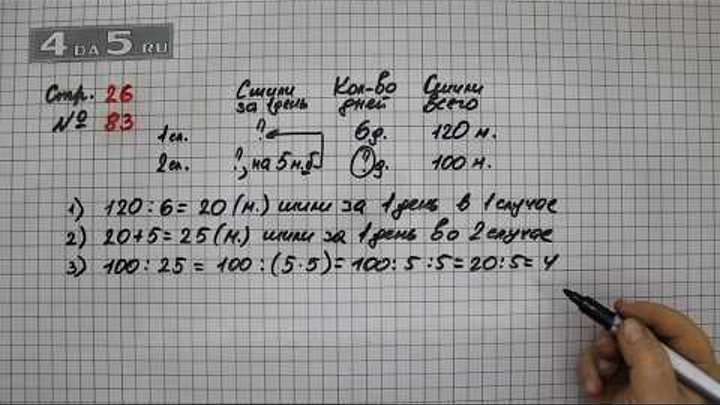 4 DA 5 RU
Стр. 26
№ 83
Сшили за 1 день Кол-во дней Сшили всего
1 сл. ? 6 д. 120 н.
2 сл. ?, на 5 н. б. ? д. 100 н.
1) 120 : 6 = 20 (н.) шили за 1 день в 1 случае
2) 20 + 5 = 25 (н.) шили за 1 день во 2 случае
3) 100 : 25 = 100 : (5 · 5) = 100 : 5 : 5 = 20 : 5 = 4